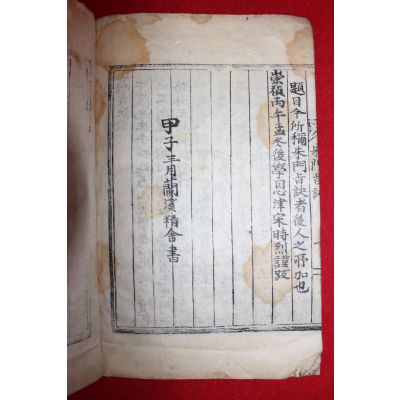 朱門旨訣
題目今所稱朱門旨訣者後人之所加也
崇禎丙午孟冬後學恩津宋時烈謹跋
甲子三月蘭溪精舍書